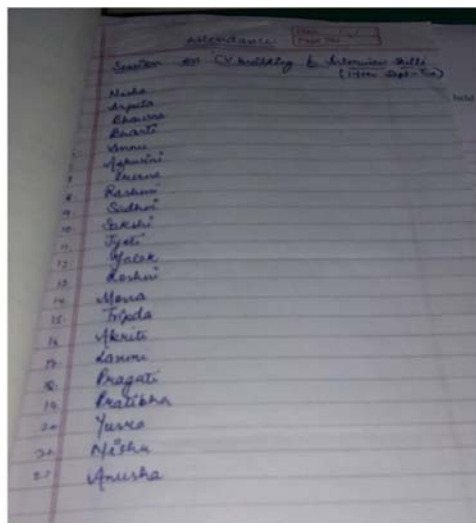 Attendance
Session on CV building & Interview Skills
Nisha
Arpita
Bhawna
Bharti
Annu
Prerna
8 Rashmi
9 Sadhvi
10 Sakshi
11. Jyoti
12. Palak
13. Roshni
14. Mona
15. Tripda
16. Akriti
17. Laxmi
18. Pragati
19. Pratibha
20. Yusra
21. Nishu
22 Anusha